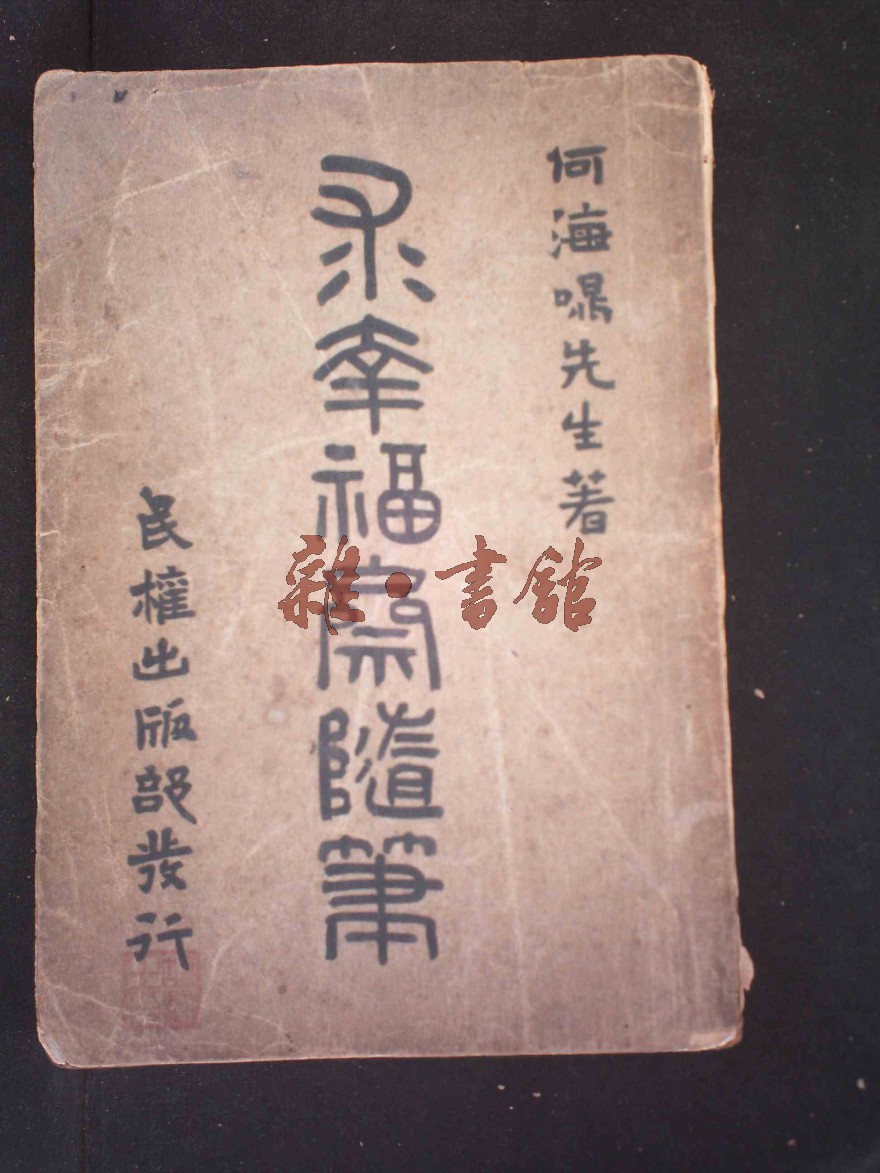 何海鳴先生著
求幸福齋隨筆
民權出版部發行
雜·書館